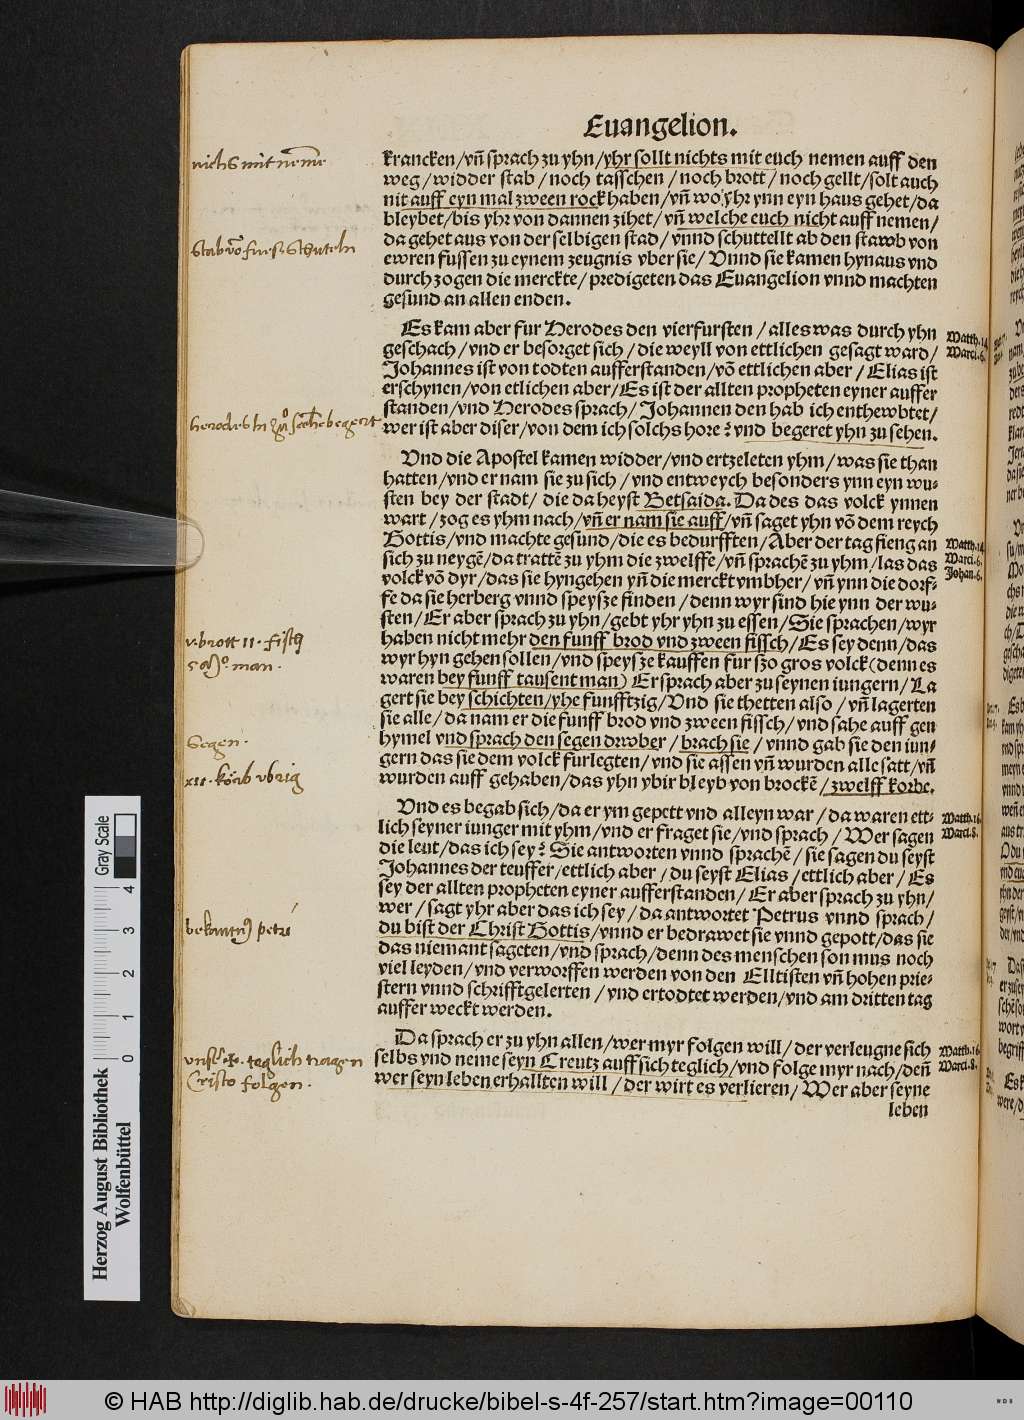 Euangelion.
krancken/vñ sprach zu yhn/yhr sollt nichts mit euch nemen auff den
weg/widder stab/noch tasschen/noch brott/noch gellt/solt auch
nit auff eyn mal zween rock haben/vñ wo yhr ynn eyn haus gehet/da
bleybet/bis yhr von dannen zihet/vñ welche euch nicht auff nemen/
da gehet aus von der selbigen stad/vnnd schuttellt ab den stawb von
ewren fussen zu eynem zeugnis vber sie/Vnnd sie kamen hynaus vnd
durch zogen die merckte/predigeten das Euangelion vnnd machten
gesund an allen enden.
Es kam aber fur Herodes den vierfursten/alles was durch yhn
geschach/vnd er besorget sich/die weyll von ettlichen gesagt ward/
Johannes ist von todten aufferstanden/võ ettlichen aber/Elias ist
erschynen/von etlichen aber/Es ist der allten propheten eyner auffer
standen/vnd Herodes sprach/Johannen den hab ich enthewbtet/
wer ist aber diser/von dem ich solchs hore? vnd begeret yhn zu sehen.
Matth.14.
Marci.6.
Vnd die Apostel kamen widder/vnd ertzeleten yhm/was sie than
hatten/vnd er nam sie zu sich/vnd entweych besonders ynn eyn wu-
sten bey der stadt/die da heyst Betsaida. Da des das volck ynnen
wart/zog es yhm nach/vñ er nam sie auff/vñ saget yhn võ dem reych
Gottis/vnd machte gesund/die es bedurfften/Aber der tag fieng an
sich zu neygẽ/da trattẽ zu yhm die zwelffe/vñ sprachẽ zu yhm/las das
volck võ dyr/das sie hyngehen yñ die merckt vmbher/vñ ynn die dorf-
fe da sie herberg vnnd speysze finden/denn wyr sind hie ynn der wu-
sten/Er aber sprach zu yhn/gebt yhr yhn zu essen/Sie sprachen/wyr
haben nicht mehr den funff brod vnd zween fissch/Es sey denn/das
wyr hyn gehen sollen/vnd speysze kauffen fur szo gros volck(denn es
waren bey funff tausent man) Er sprach aber zu seynen iungern/La
gert sie bey schichten/yhe funfftzig/Vnd sie thetten also/vñ lagerten
sie alle/da nam er die funff brod vnd zween fissch/vnd sahe auff gen
hymel vnd sprach den segen drwber/brach sie/vnnd gab sie den iun-
gern das sie dem volck furlegten/vnd sie assen vñ wurden alle satt/vñ
wurden auff gehaben/das yhn vbir bleyb von brockẽ/zwelff korbe.
Matth.14
Marci.6.
Johan.6.
Vnd es begab sich/da er ym gepett vnd alleyn war/da waren ett-
lich seyner iunger mit yhm/vnd er fraget sie/vnd sprach/Wer sagen
die leut/das ich sey? Sie antworten vnnd sprachẽ/sie sagen du seyst
Johannes der teuffer/ettlich aber/du seyst Elias/ettlich aber/Es
sey der allten propheten eyner aufferstanden/Er aber sprach zu yhn/
wer/sagt yhr aber das ich sey/da antwortet Petrus vnnd sprach/
du bist der Christ Gottis/vnnd er bedrawet sie vnnd gepott/das sie
das niemant sageten/vnd sprach/denn des menschen son mus noch
viel leyden/vnd verworffen werden von den Elltisten vñ hohen prie-
stern vnnd schrifftgelerten/vnd ertodtet werden/vnd am dritten tag
auffer weckt werden.
Matth.16.
Marci.8.
Da sprach er zu yhn allen/wer myr folgen will/der verleugne sich
selbs vnd neme seyn Creutz auff sich teglich/vnd folge myr nach/deñ
wer seyn leben erhallten will/der wirt es verlieren/Wer aber seyne
leben
Matth.16.
Marci.8.
v. brott II. fisch
man.
Segen.
XII. körb vbrig
petri
taglich tragen
Cristo folgen.
Herzog August Bibliothek
Wolfenbüttel
Gray Scale
0 1 2 3 4
© HAB http://diglib.hab.de/drucke/bibel-s-4f-257/start.htm?image=00110